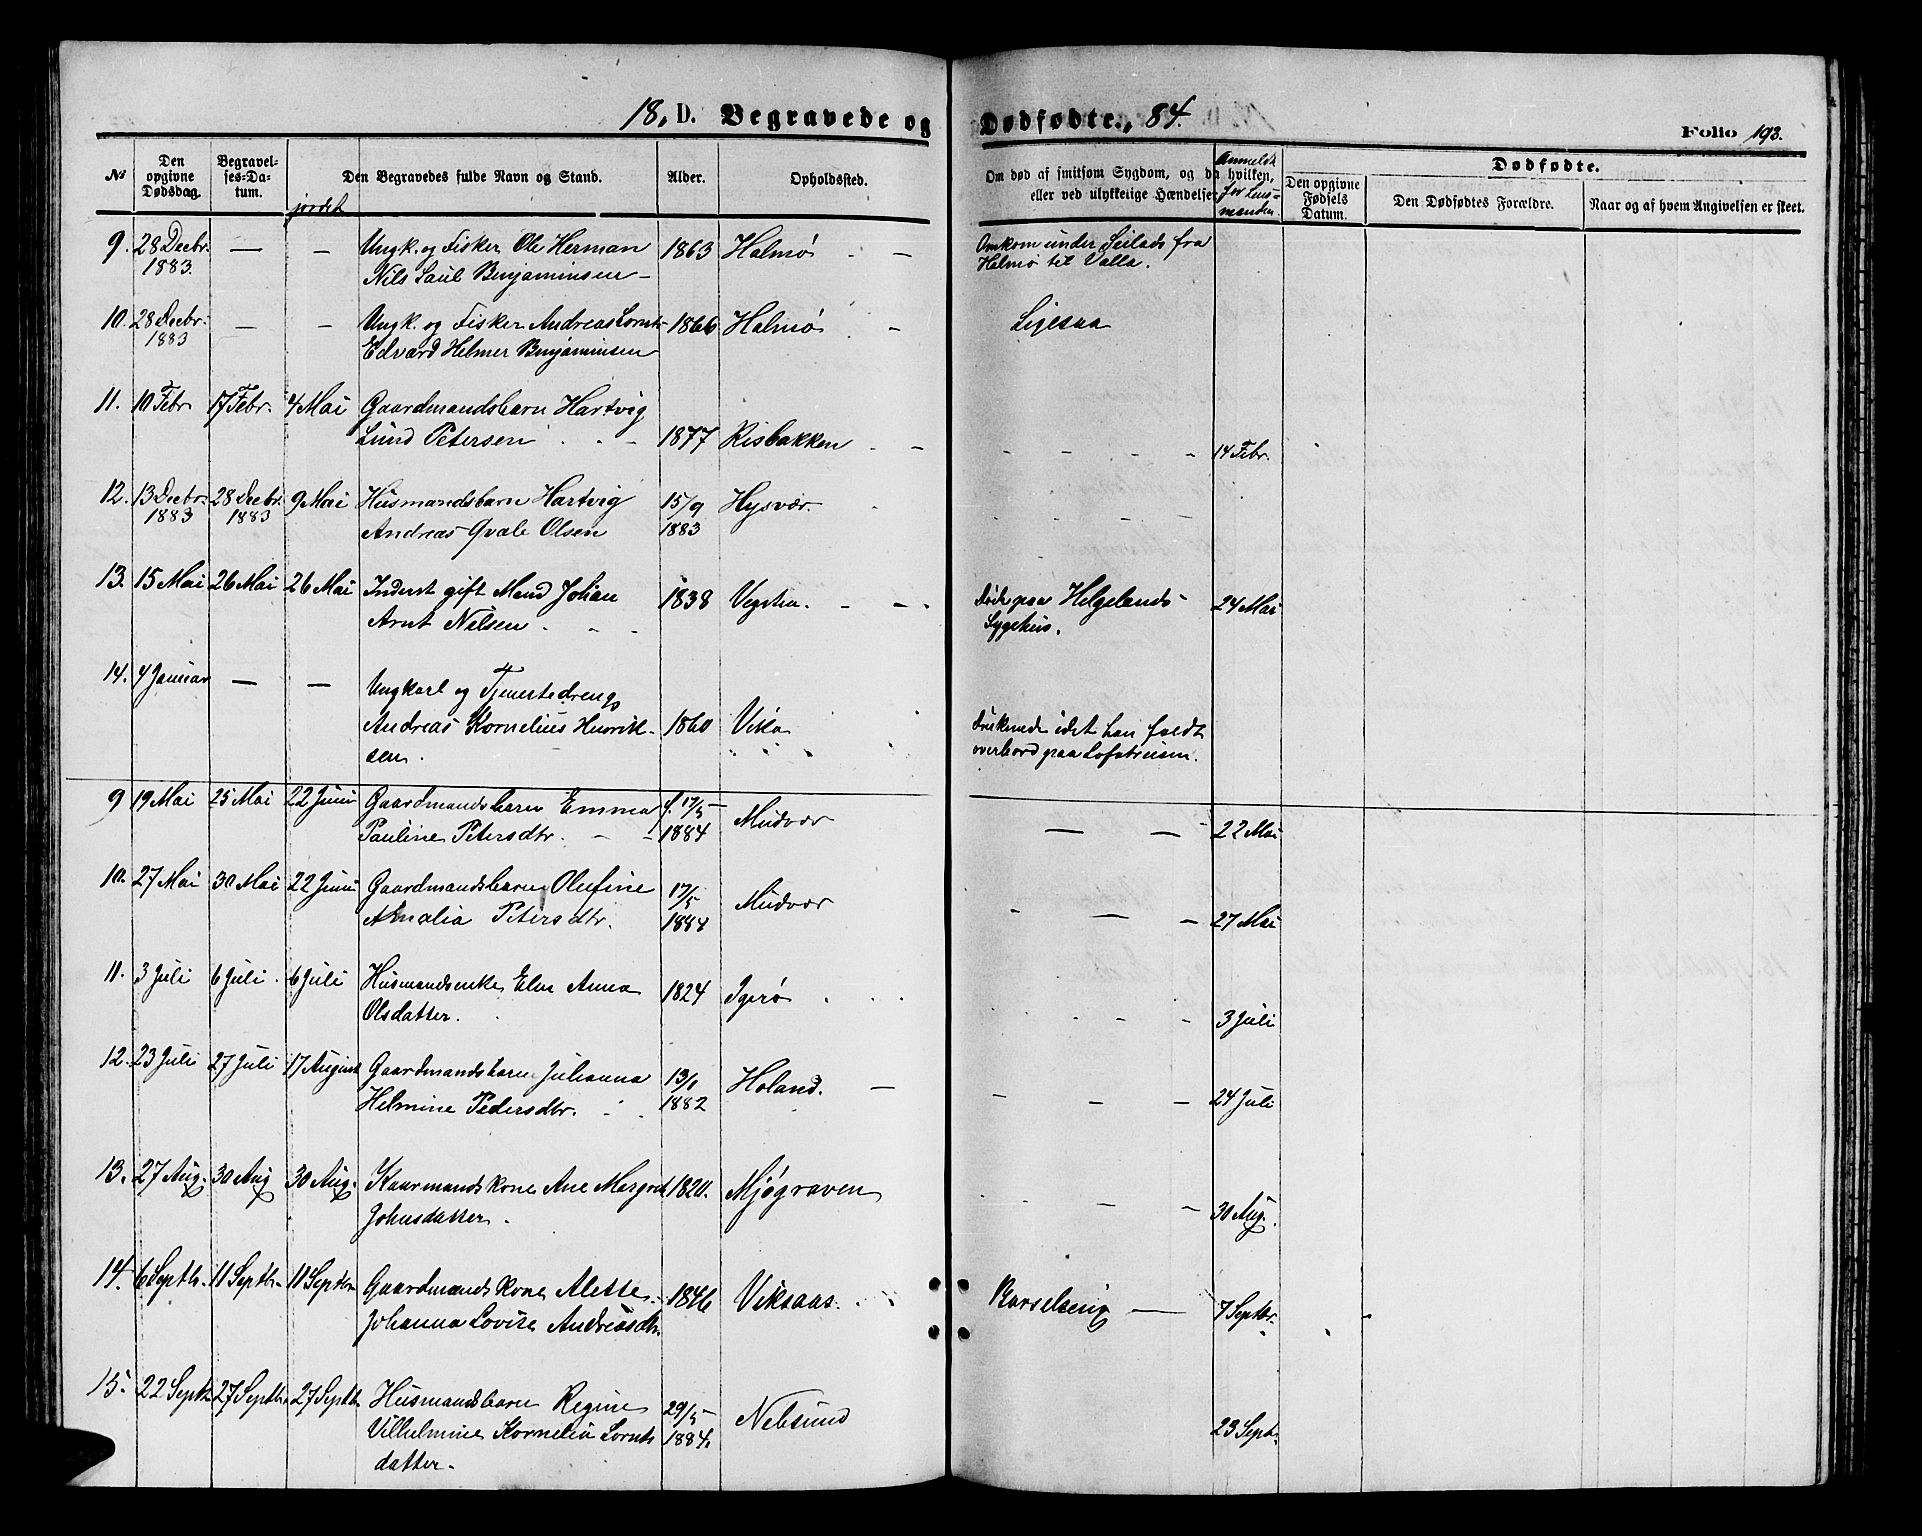 18, D. Begravede og Dødfødte., 84.
Folio 193.
№
Den opgivne Dødsdag.
Begravelses-Datum.
jordet
Den Begravedes fulde Navn og Stand.
Alder.
Opholdssted.
Om død af smitsom Sygdom, og da hvilken,
eller ved ulykkelige Hændelser.
Anmeldt
for Lens-
manden
Dødfødte.
Den opgivne Fødsels Datum.
Den Dødfødtes Forældre.
Naar og af hvem Angivelsen er skeet.
9. 28 Decbr. — — Ungk. og Fisker Ole Herman 1863 Halmø - — Omkom under Seilads fra
1883. Nils Saul Benjaminsen — Halmø til Valla.
10. 28 Decbr. — — Ungk. og Fisker Andreas Lornts 1866 Halmø — Ligesaa
1883 Edvard Helmer Benjaminsen
11. 10 Febr 17 Febr. 4 Mai Gaardmandsbarn Hartvig
Lund Petersen 1877 Risbakken - — 14 Febr.
12. 13 Decbr. 28 Decbr. 9 Mai Husmandsbarn Hartvig 15/9 Hysvær.
1883 1883 Andreas Qvale Olsen 1883
13. 15 Mai 26 Mai 26 Mai Inderst gift Mand Johan 1838 Vegstia. - — Døde paa Helgelands 24 Mai
Arnt Nilsen. Sygehus.
14. 4 Januar — — Ungkarl og Tjenestedreng
Andreas Kornelius Henrik- 1860 Vika druknede idet han faldt
sen. overbord paa Lofotreisen.
9 19 Mai 25 Mai 22 Juni Gaardmandsbarn Emma f. 17/5 Mudvær — — 22 Mai
Pauline Petersdtr. 1884
10. 27 Mai 30 Mai 22 Juni Gaardmandsbarn Olufine 17/5 Mudvær - — 27 Mai
Amalia Petersdtr. 1884
11. 3 Juli 6 Juli. 6 Juli Husmandsenke Elen Anna 1824 Igerø - - 3 Juli
Olsdatter.
12. 23 Juli 27 Juli 17 August Gaardmandsbarn Julianna 13/1 Holand. — - — 24 Juli
Helmine Pedersdtr. 1882
13. 27 Aug. 30 Aug 30 Aug. Kaarmandskone Ane Margret 1820. Mjøgraven - — 30 Aug.
Johnsdatter.
14. 6 Septbr. 11 Septbr. 11 Septbr. Gaardmandskone Alette 1846 Viksaas. Barselseng — 7 Septbr.
Johanna Lovise Andreasdtr.
15. 22 Septbr 27 Septbr. 27 Septbr. Husmandsbarn Regine 29/5 Nebsund 23 Septr.
Vilhelmine Kornelia Lornts 1884.
datter.